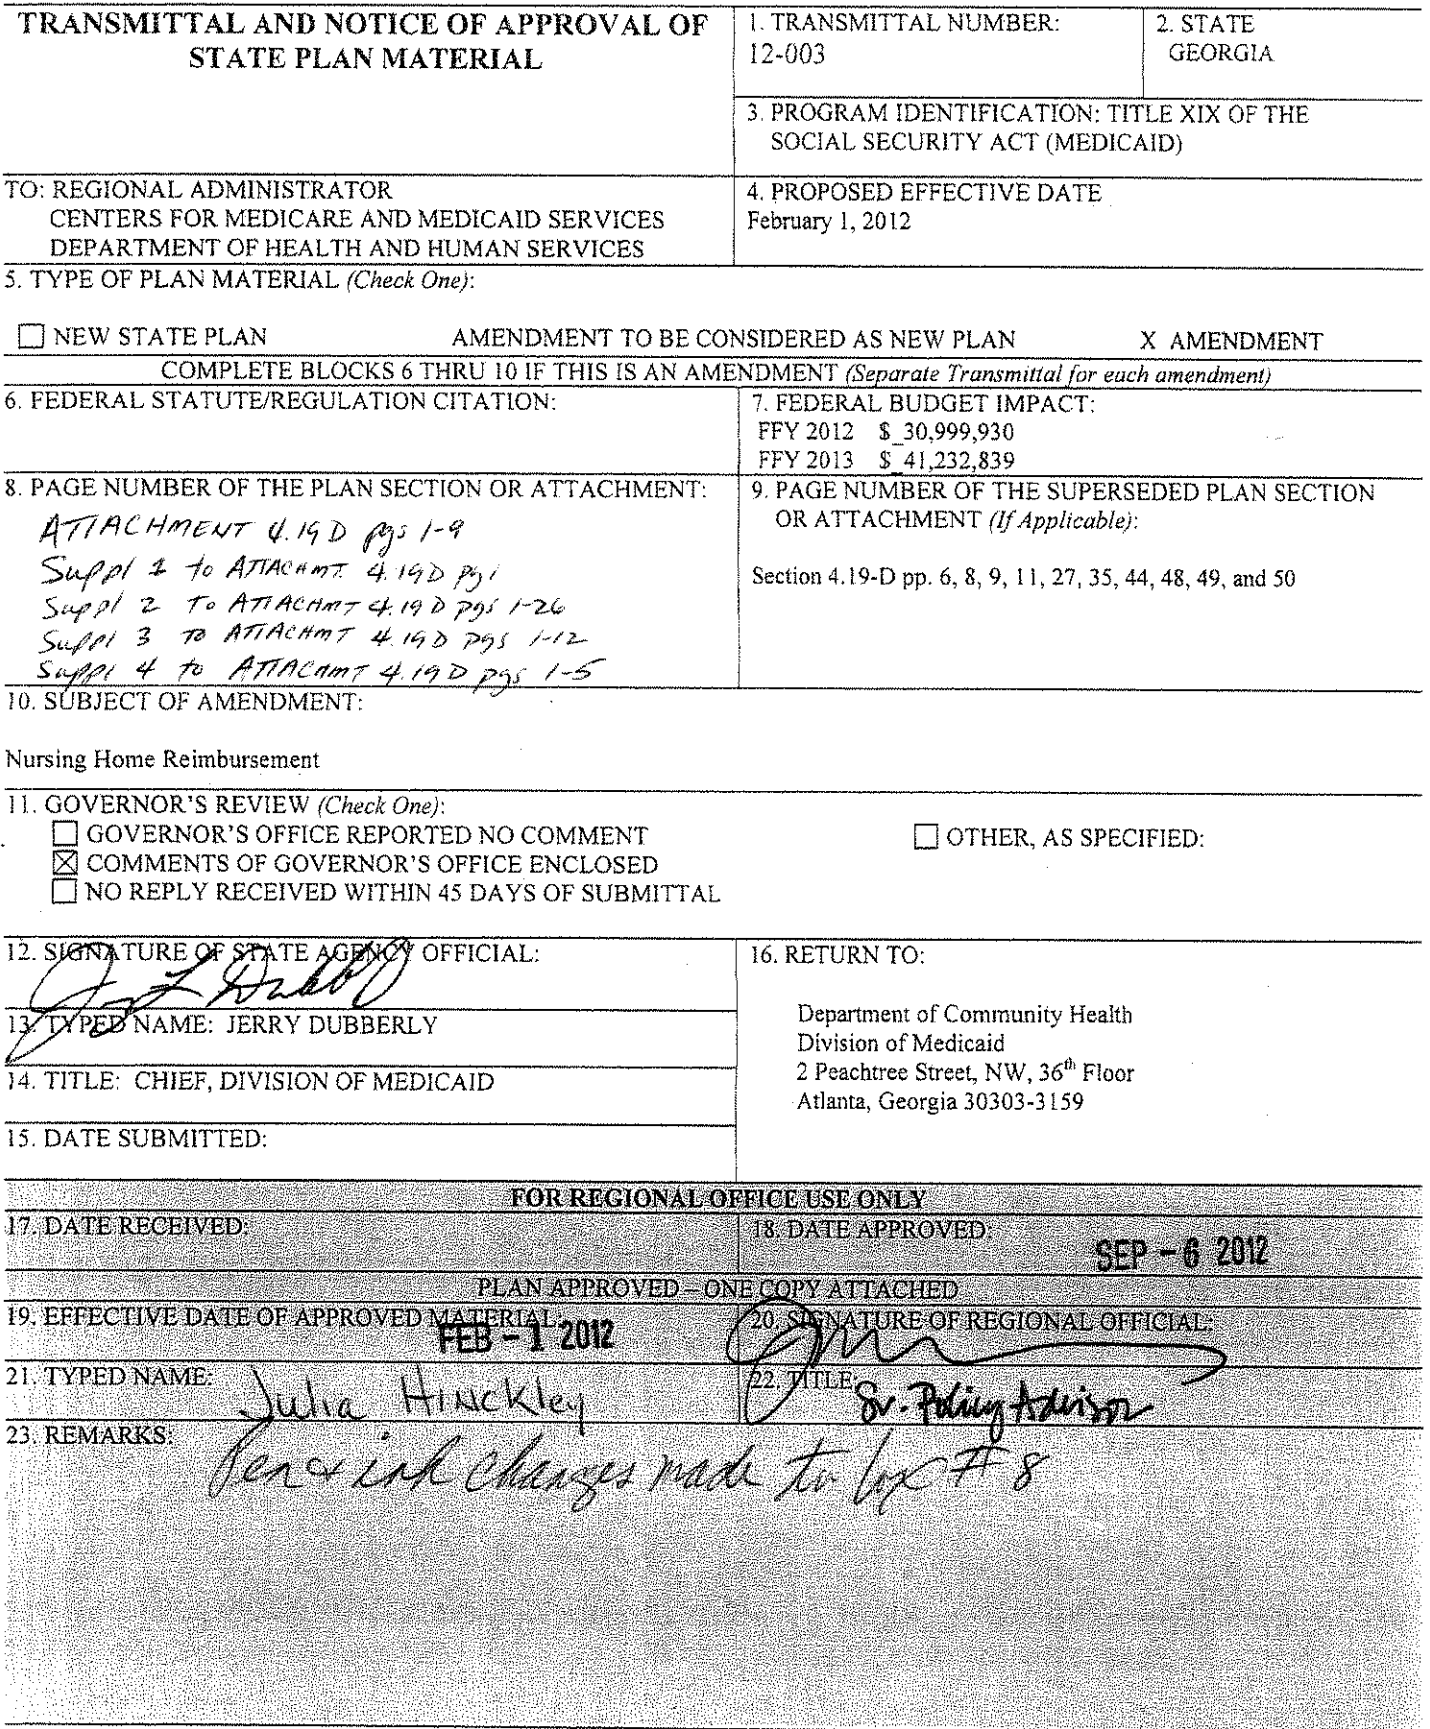 TRANSMITTAL AND NOTICE OF APPROVAL OF
STATE PLAN MATERIAL
1. TRANSMITTAL NUMBER:
12-003
2. STATE
GEORGIA
3. PROGRAM IDENTIFICATION: TITLE XIX OF THE
SOCIAL SECURITY ACT (MEDICAID)
TO: REGIONAL ADMINISTRATOR
CENTERS FOR MEDICARE AND MEDICAID SERVICES
DEPARTMENT OF HEALTH AND HUMAN SERVICES
4. PROPOSED EFFECTIVE DATE
February 1, 2012
5. TYPE OF PLAN MATERIAL (Check One):
☐ NEW STATE PLAN AMENDMENT TO BE CONSIDERED AS NEW PLAN X AMENDMENT
COMPLETE BLOCKS 6 THRU 10 IF THIS IS AN AMENDMENT (Separate Transmittal for each amendment)
6. FEDERAL STATUTE/REGULATION CITATION:
7. FEDERAL BUDGET IMPACT:
FFY 2012 $_30,999,930
FFY 2013 $_41,232,839
8. PAGE NUMBER OF THE PLAN SECTION OR ATTACHMENT:
ATTACHMENT 4.19D pgs 1-9
Suppl 1 to ATTACHMT 4.19D pg 1
Suppl 2 TO ATTACHMT 4.19D pgs 1-26
Suppl 3 TO ATTACHMT 4.19D pgs 1-12
Suppl 4 to ATTACHMT 4.19D pgs 1-5
9. PAGE NUMBER OF THE SUPERSEDED PLAN SECTION
OR ATTACHMENT (If Applicable):
Section 4.19-D pp. 6, 8, 9, 11, 27, 35, 44, 48, 49, and 50
10. SUBJECT OF AMENDMENT:
Nursing Home Reimbursement
11. GOVERNOR'S REVIEW (Check One):
☐ GOVERNOR'S OFFICE REPORTED NO COMMENT
☒ COMMENTS OF GOVERNOR'S OFFICE ENCLOSED
☐ NO REPLY RECEIVED WITHIN 45 DAYS OF SUBMITTAL
☐ OTHER, AS SPECIFIED:
12. SIGNATURE OF STATE AGENCY OFFICIAL:
13. TYPED NAME: JERRY DUBBERLY
14. TITLE: CHIEF, DIVISION OF MEDICAID
15. DATE SUBMITTED:
16. RETURN TO:
Department of Community Health
Division of Medicaid
2 Peachtree Street, NW, 36th Floor
Atlanta, Georgia 30303-3159
FOR REGIONAL OFFICE USE ONLY
17. DATE RECEIVED:
18. DATE APPROVED:
SEP - 6 2012
PLAN APPROVED – ONE COPY ATTACHED
19. EFFECTIVE DATE OF APPROVED MATERIAL:
FEB - 1 2012
20. SIGNATURE OF REGIONAL OFFICIAL:
21. TYPED NAME:
Julia Hinckley
22. TITLE:
Sr. Policy Advisor
23. REMARKS:
Pen & ink changes made to box # 8